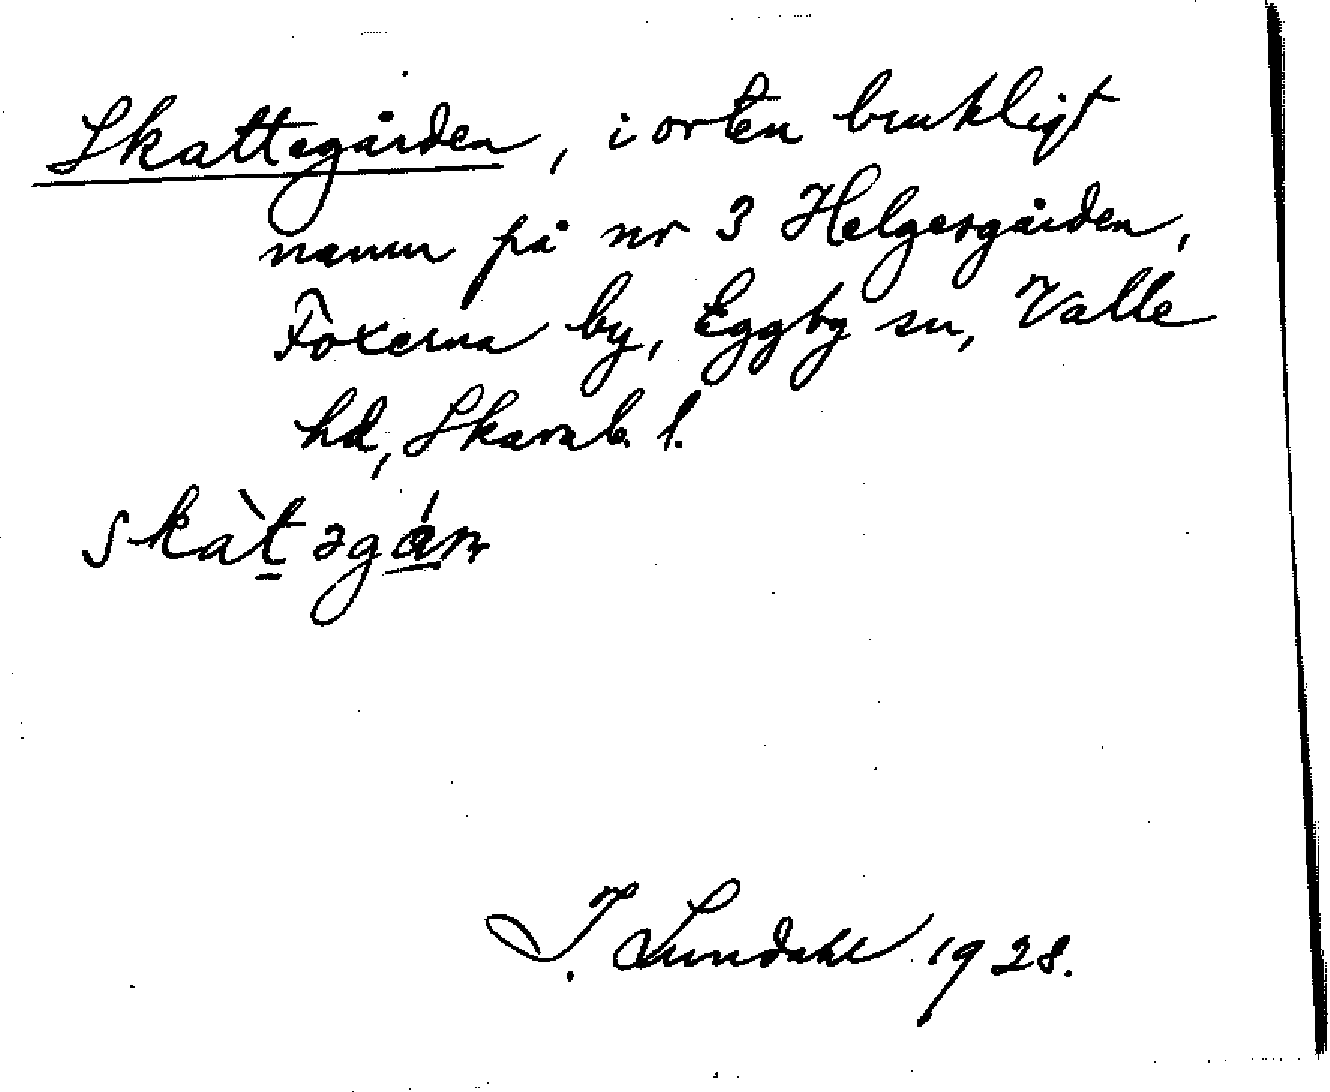 Skattegården, i orten brukligt
namn på nr 3 Helgesgården,
Foxerna by, Eggby sn, Valle
hd, Skarab. l.
skàt̲əgǻ̲rn
I. Lundahl 1928.